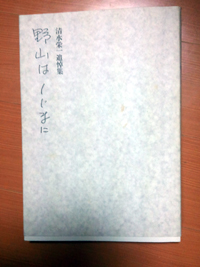 清水栄一追悼集
野山はしじまに